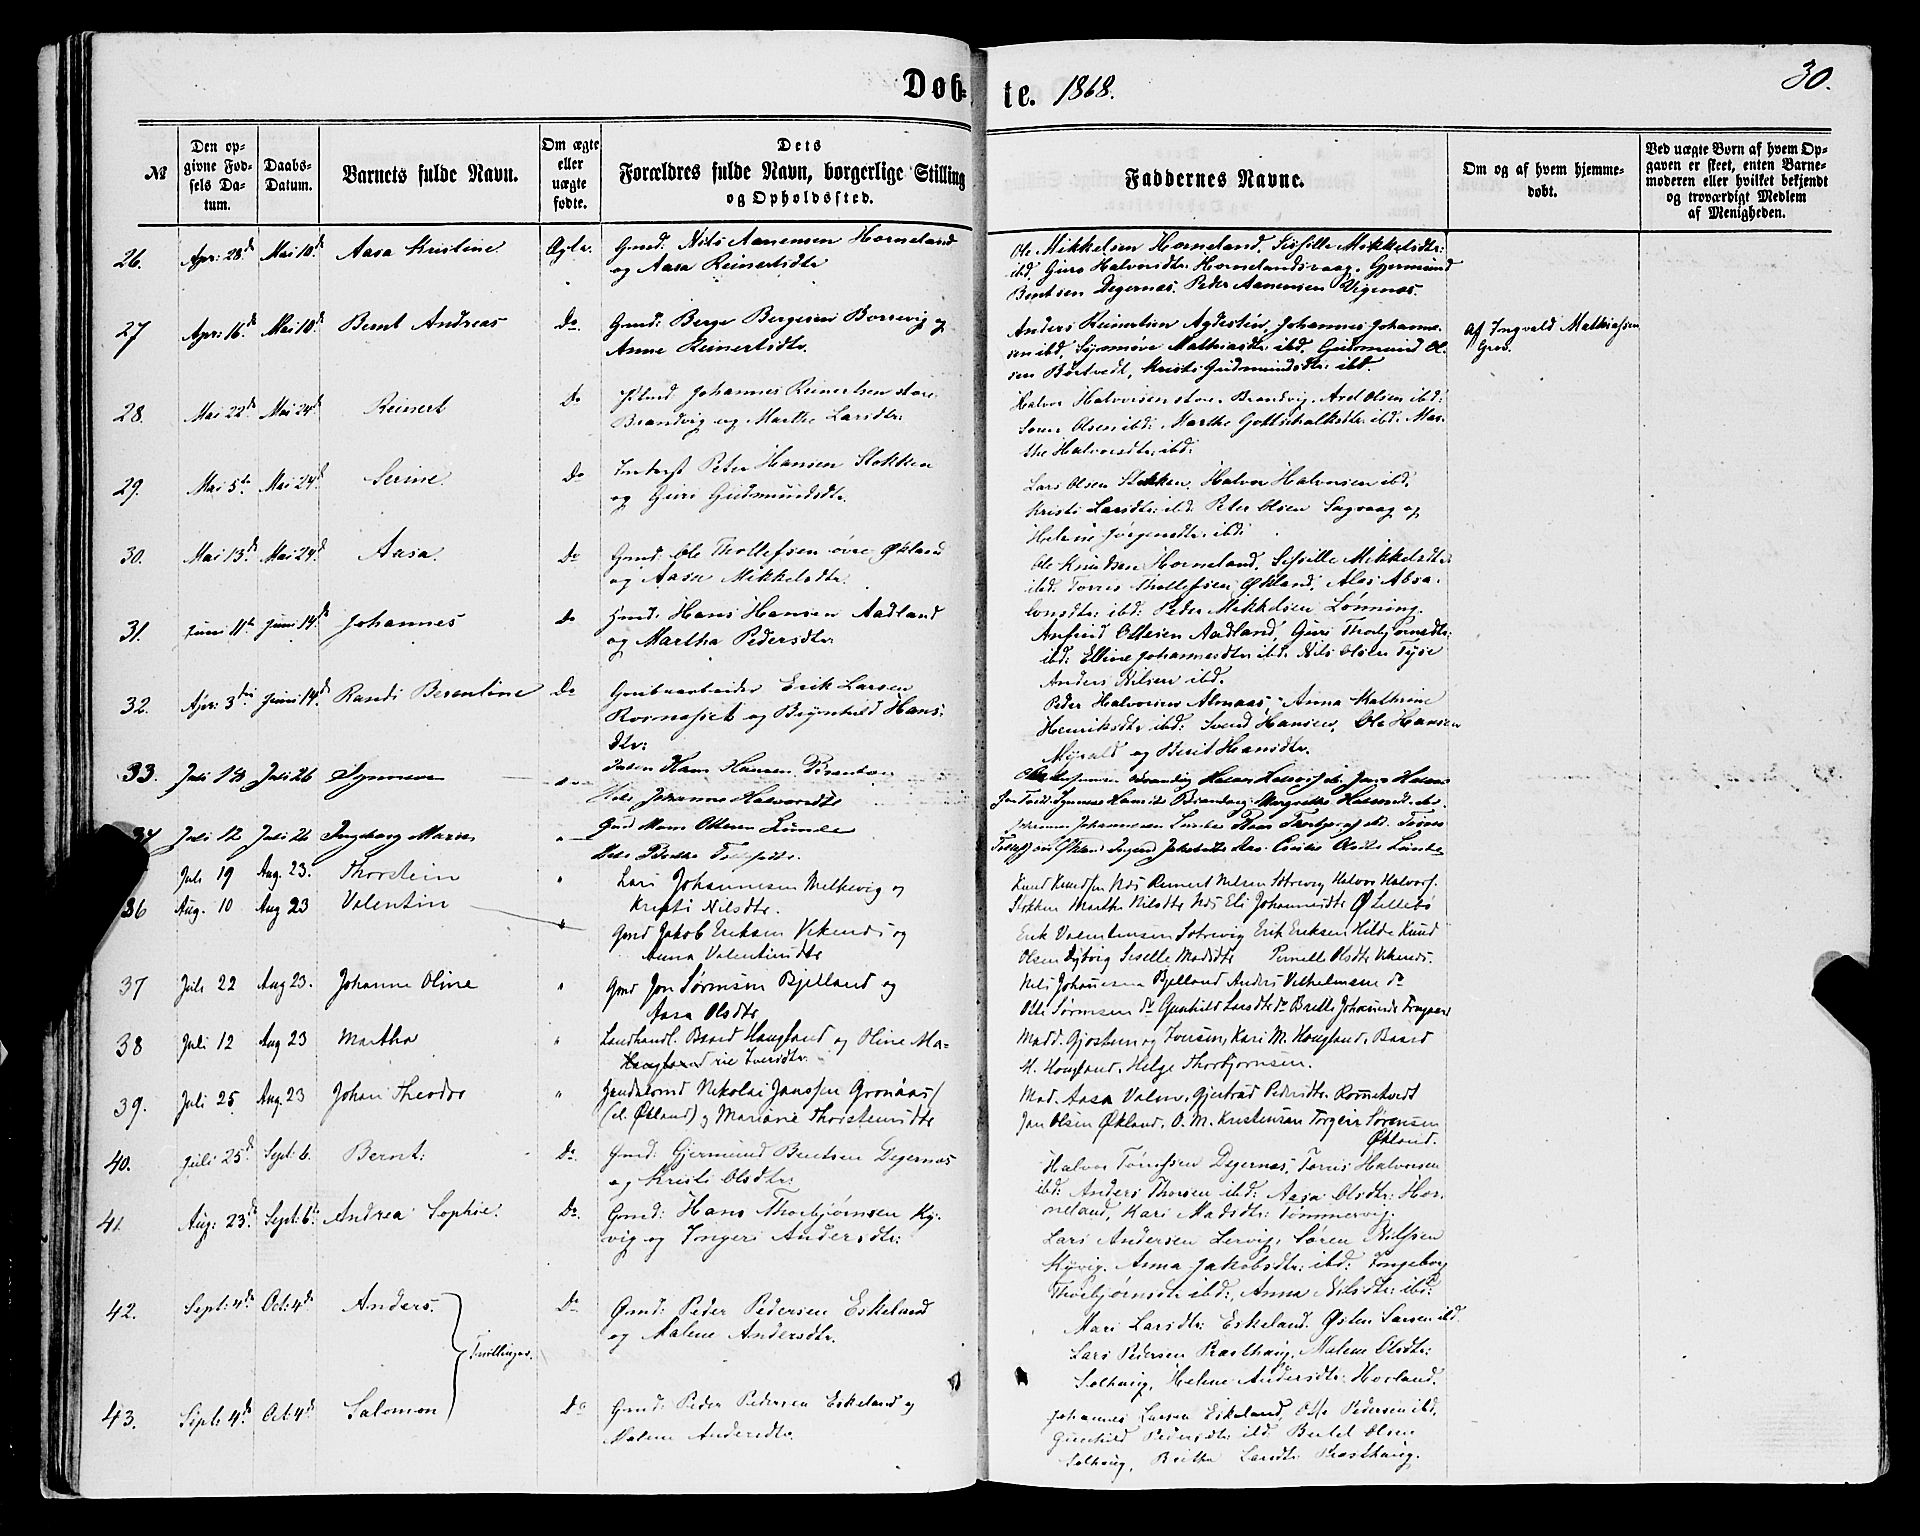 Døb- te. 1868. 30.
№
Den op-
givne Fød-
sels Da-
tum.
Daabs-
Datum.
Barnets fulde Navn.
Om ægte
eller
uægte
fødte.
Dets
Forældres fulde Navn, borgerlige Stilling
og Opholdssted.
Faddernes Navne.
Om og af hvem hjemme-
døbt.
Ved uægte Børn af hvem Op-
gaven er skeet, enten Barne-
moderen eller hvilket bekjendt
og troværdigt Medlem
af Menigheden.
26. Apr: 28de Mai 10de Aasa Kristine Ægte. Gmd: Nils Aanensen Horneland
og Aasa Reinertsdtr
Ole Mikkelsen Horneland, Sissille Mikkelsdtr:
ibd. Guro Halvorsdtr: Hornelandsvaag. Gjermund
Bentsen Degernæs. Peder Aanensen Vigenæs.
27 Apr: 16de Mai 10de Bernt Andreas Do. Gmd: Berge Bergesen Borrevig og
Anne Reinertsdtr.
Anders Reinertsen Agdestén, Johannes Johanne-
sen ibd, Synnøve Mathiasdtr: ibd, Gudmund Ol-
sen Børtvedt, Kristi Gudmundsdtr: ibd.
Af Ingvald Mathiassen
Grov.
28. Mai 22de Mai 24de Reinert Do Johannes Reinertsen store
Brandvig og Marthe Larsdtr:
Halvor Halvorsen store Brandvig. Axel Olsen ibd:
Søren Olsen ibd: Marthe Gottschalksdtr: ibd. Mar-
the Halvorsdtr: ibd:
29. Mai 5te Mai 24de Serine. Do Inderst Peter Hansen Stokken
og Guri Gudmundsdtr.
Lars Olsen Stokken, Halvor Halvorsen ibd,
Kristi Larsdtr: ibd. Peter Olsen Sagvaag og
Helene Jørgensdtr: ibd:
30. Mai 13de Mai 24de Aasa. Do Gmd: Ole Thollefsen øvre Økland
og Aasa Mikkelsdtr.
Ole Knudsen Horneland. Sissille Mikkelsdtr
ibd. Torris Thollefsen Økland, Ales Absa-
lonsdtr: ibd: Peder Mikkelsen Lønning.
31. Juni 11te Juni 14de Johannes Do Gmd: Hans Hansen Aadland
og Martha Pedersdtr
Anfind Ottesen Aadland, Guri Thorbjørnsdtr:
ibd: Elline Johannesdtr ibd. Nils Olsen Tyse
Anders Nilsen ibd.
32. Apr: 3die Juni 14de Randi Berentine Do Grubearbeider Erik Larsen
og Brynhild Hans-
dtr:
Peder Halvorsen Almaas, Anna Kathrine
Henriksdtr ibd: Svend Hansen, Ole Hansen
og Berit Hansdtr.
33. Juli 14 Juli 26 Hans Hansen
Johanne Halvorsdtr
Juli 12 Juli 26 Ingeborg Gmd Mons Ottesen Lunde
Juli 19 Aug. 23. Thorstein Lars Johannesen Melkevig og
Kristi Nilsdtr.
Knud Knudsen Næs Reinert Nilsen Sotrevig Halvor Halvors.
Stokken Marthe Nilsdtr Næs Eli Johannesdtr Ø Lillebø
36 Aug. 10 Aug 23 Valentin Gmd Jakob Eriksen Vekenæs og
Anna Valentinsdtr
Erik Valentinsen Sotrevig Erik Eriksen Hilde Knud
Olsen Dybvig Siselle Madsdtr Pernille Olsdtr Vekenæs.
37 Juli 22 Aug 23. Johanne Oline Gmd Jon Sørensen Bjelland og
Aasa Olsdtr
Nils Johannesen Bjelland Anders Vilhelmsen do
Otte Sørensen do Gunhild Larsdtr do Britte Johannesdtr
38 Juli 12 Aug 23 Martha Landhandl. Baard Haugland og Oline Ma-
rie Iversdtr.
Madd. Gjøstein og Iversen, Kari M. Haugland, Baard
H. Haugland. Helge Thorbjørnsen.
39. Juli 25 Aug. 23 Johan Theodor Nikolai Janssen Grønaas
(el. Økland) og Mariane Thorsteinsdtr
Mad. Aasa Valen, Gjertrud Pedersdtr Rømetvedt
Jan Olsen Økland, O. M. Kristensen Torgeir Sørensen
Økland.
40. Juli 25de Sept: 6. Bernt: Do. Gmd: Gjermund Bentsen Degernæs
og Kristi Olsdtr:
Halvor Tørrissen Degernæs, Tørris Halvorsen
ibd: Anders Thorsen ibd: Aasa Olsdtr: Hor-
neland, Kari Madsdtr: Tømmervig.
41. Aug: 23de Sept: 6te Andrea Sophie. Do. Gmd: Hans Thorbjørnsen Ky-
vig og Ingeri Andersdtr:
Lars Andersen Lervig, Søren Nilssen
Kyvig. Anna Jakobsdtr: ibd: Ingeborg
Thorbjørnsdtr ibd:, Anna Nilsdtr: ibd:
42. Sept: 4de Oct: 4de Anders. Do Gmd: Peder Pedersen Eskeland
og Malene Andersdtr.
Tvillinger.
Mari Larsdtr: Eskeland. Østen Larsen ibd.
Lars Pedersen Prasthaug, Malene Olsdtr:
Solhaug, Helene Andersdtr: Hovland.
43. Sept: 4de Oct: 4de Salomon Do Gmd: Peder Pedersen Eskeland og
Malene Andersdtr.
Johannes Larsen Eskeland, Otto Pedersen ibd,
Gunhild Pedersdtr: ibd Bertel Olsen
Solhaug, Britha Larsdtr Prasthaug.